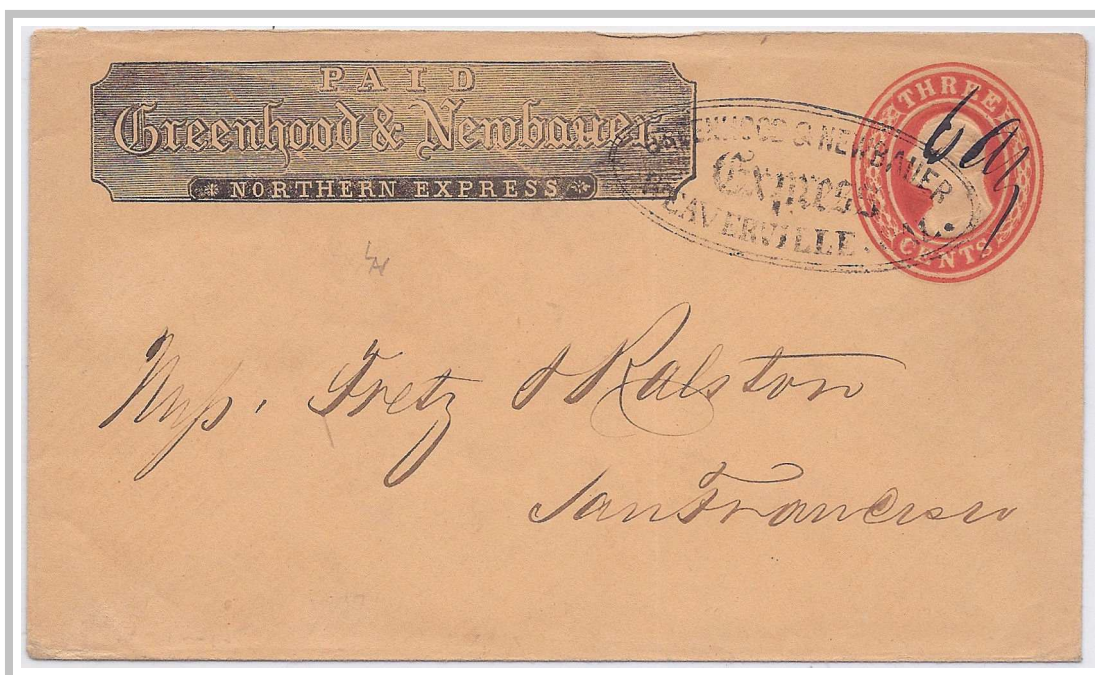 PAID
Greenhood & Newbauer
NORTHERN EXPRESS
GREENHOOD & NEWBAUER
Express
WEAVERVILLE. CAL.
THREE
CENTS
Fretz & Ralston
San Francisco